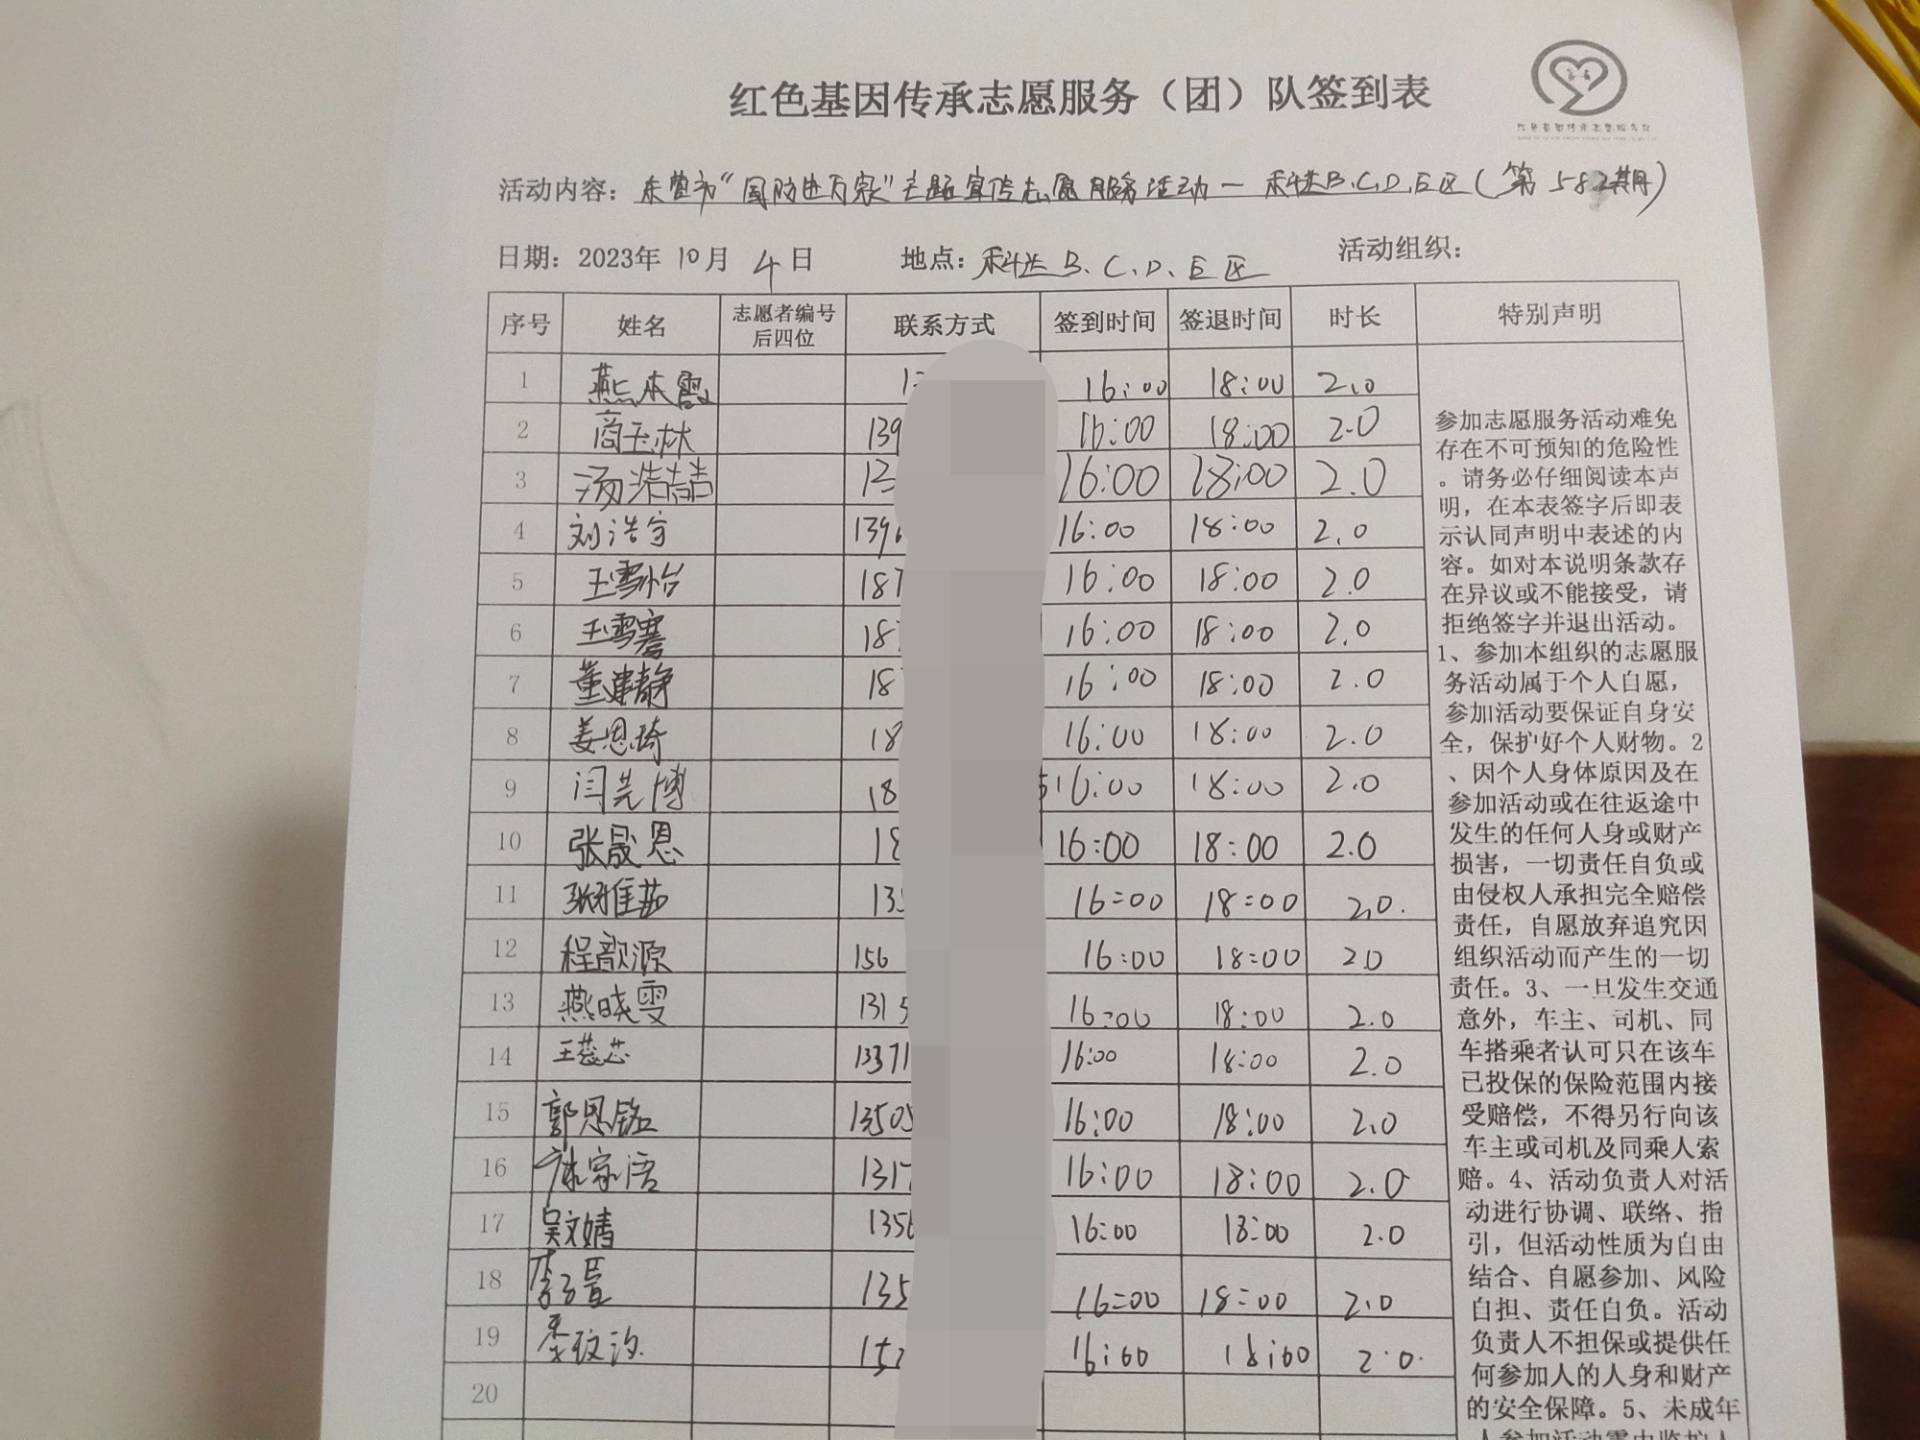 红色基因传承志愿服务（团）队签到表
活动内容：东营市“国防进万家”主题宣传志愿服务活动－科达B.C.D.E区（第582期）
日期：2023年10月4日 地点：科达B、C、D、E区 活动组织：
序号 姓名 志愿者编号后四位 联系方式 签到时间 签退时间 时长 特别声明
1 燕本霞 16:00 18:00 2.0
2 商玉林 139 16:00 18:00 2.0
3 汤浩喆 16:00 18:00 2.0
4 刘浩宇 139 16:00 18:00 2.0
5 王雪怡 187 16:00 18:00 2.0
6 王雪骞 18 16:00 18:00 2.0
7 董建静 18 16:00 18:00 2.0
8 姜恩琦 18 16:00 18:00 2.0
9 闫芸博 18 16:00 18:00 2.0
10 张晟恩 18 16:00 18:00 2.0
11 张雅茹 13 16=00 18=00 2.0.
12 程歆源 156 16:00 18:00 2.0
13 燕晓雯 1315 16:00 18:00 2.0
14 王蕊芯 13371 16:00 18:00 2.0
15 郭恩铭 13505 16:00 18:00 2.0
16 家语 1317 16:00 18:00 2.0
17 吴文婧 1356 16:00 18:00 2.0
18 李子萱 135 16=00 18=00 2.0
19 李玟汐 15 16:00 18:00 2.0.
20
参加志愿服务活动难免
存在不可预知的危险性
。请务必仔细阅读本声
明，在本表签字后即表
示认同声明中表述的内
容。如对本说明条款存
在异议或不能接受，请
拒绝签字并退出活动。
1、参加本组织的志愿服
务活动属于个人自愿，
参加活动要保证自身安
全，保护好个人财物。2
、因个人身体原因及在
参加活动或在往返途中
发生的任何人身或财产
损害，一切责任自负或
由侵权人承担完全赔偿
责任，自愿放弃追究因
组织活动而产生的一切
责任。3、一旦发生交通
意外，车主、司机、同
车搭乘者认可只在该车
已投保的保险范围内接
受赔偿，不得另行向该
车主或司机及同乘人索
赔。4、活动负责人对活
动进行协调、联络、指
引，但活动性质为自由
结合、自愿参加、风险
自担、责任自负。活动
负责人不担保或提供任
何参加人的人身和财产
的安全保障。5、未成年
人参加活动需由监护人